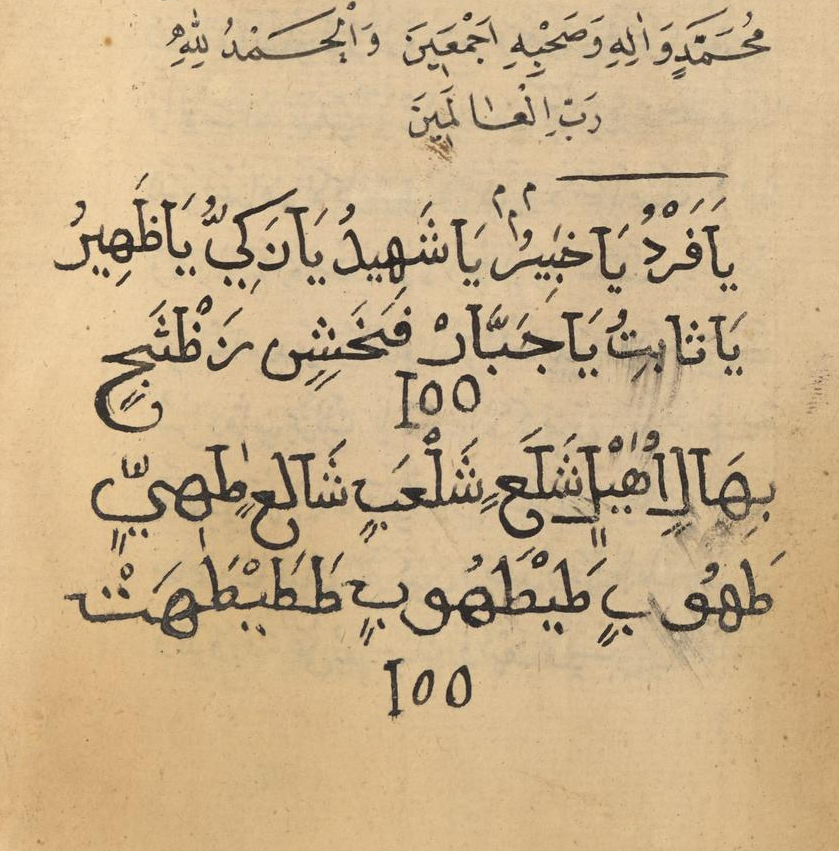 مُحَمَّدٍ وَاٰلِهِ وَصَحْبِهِ اَجْمَعِينَ وَالْحَمْدُ لِلّٰهِ
رَبِّ الْعَالَمِينَ
يَافَرْدُ يَاخَبِيرُ يَاشَهِيدُ يَازَكِيُّ يَاظَهِيرُ
يَاثَابِتُ يَاجَبَّارْ فَخَشٍ زَظْثَجٍ
١٥٥
بِهَالٍ اَهْيَلٍ شَلَعٍ شَلْعَبٍ شَالَعٍ طٰهِىٍّ
طَهُوبٍ طَيْطَهُوبٍ طَطَيْطَهَتْ
١٥٥